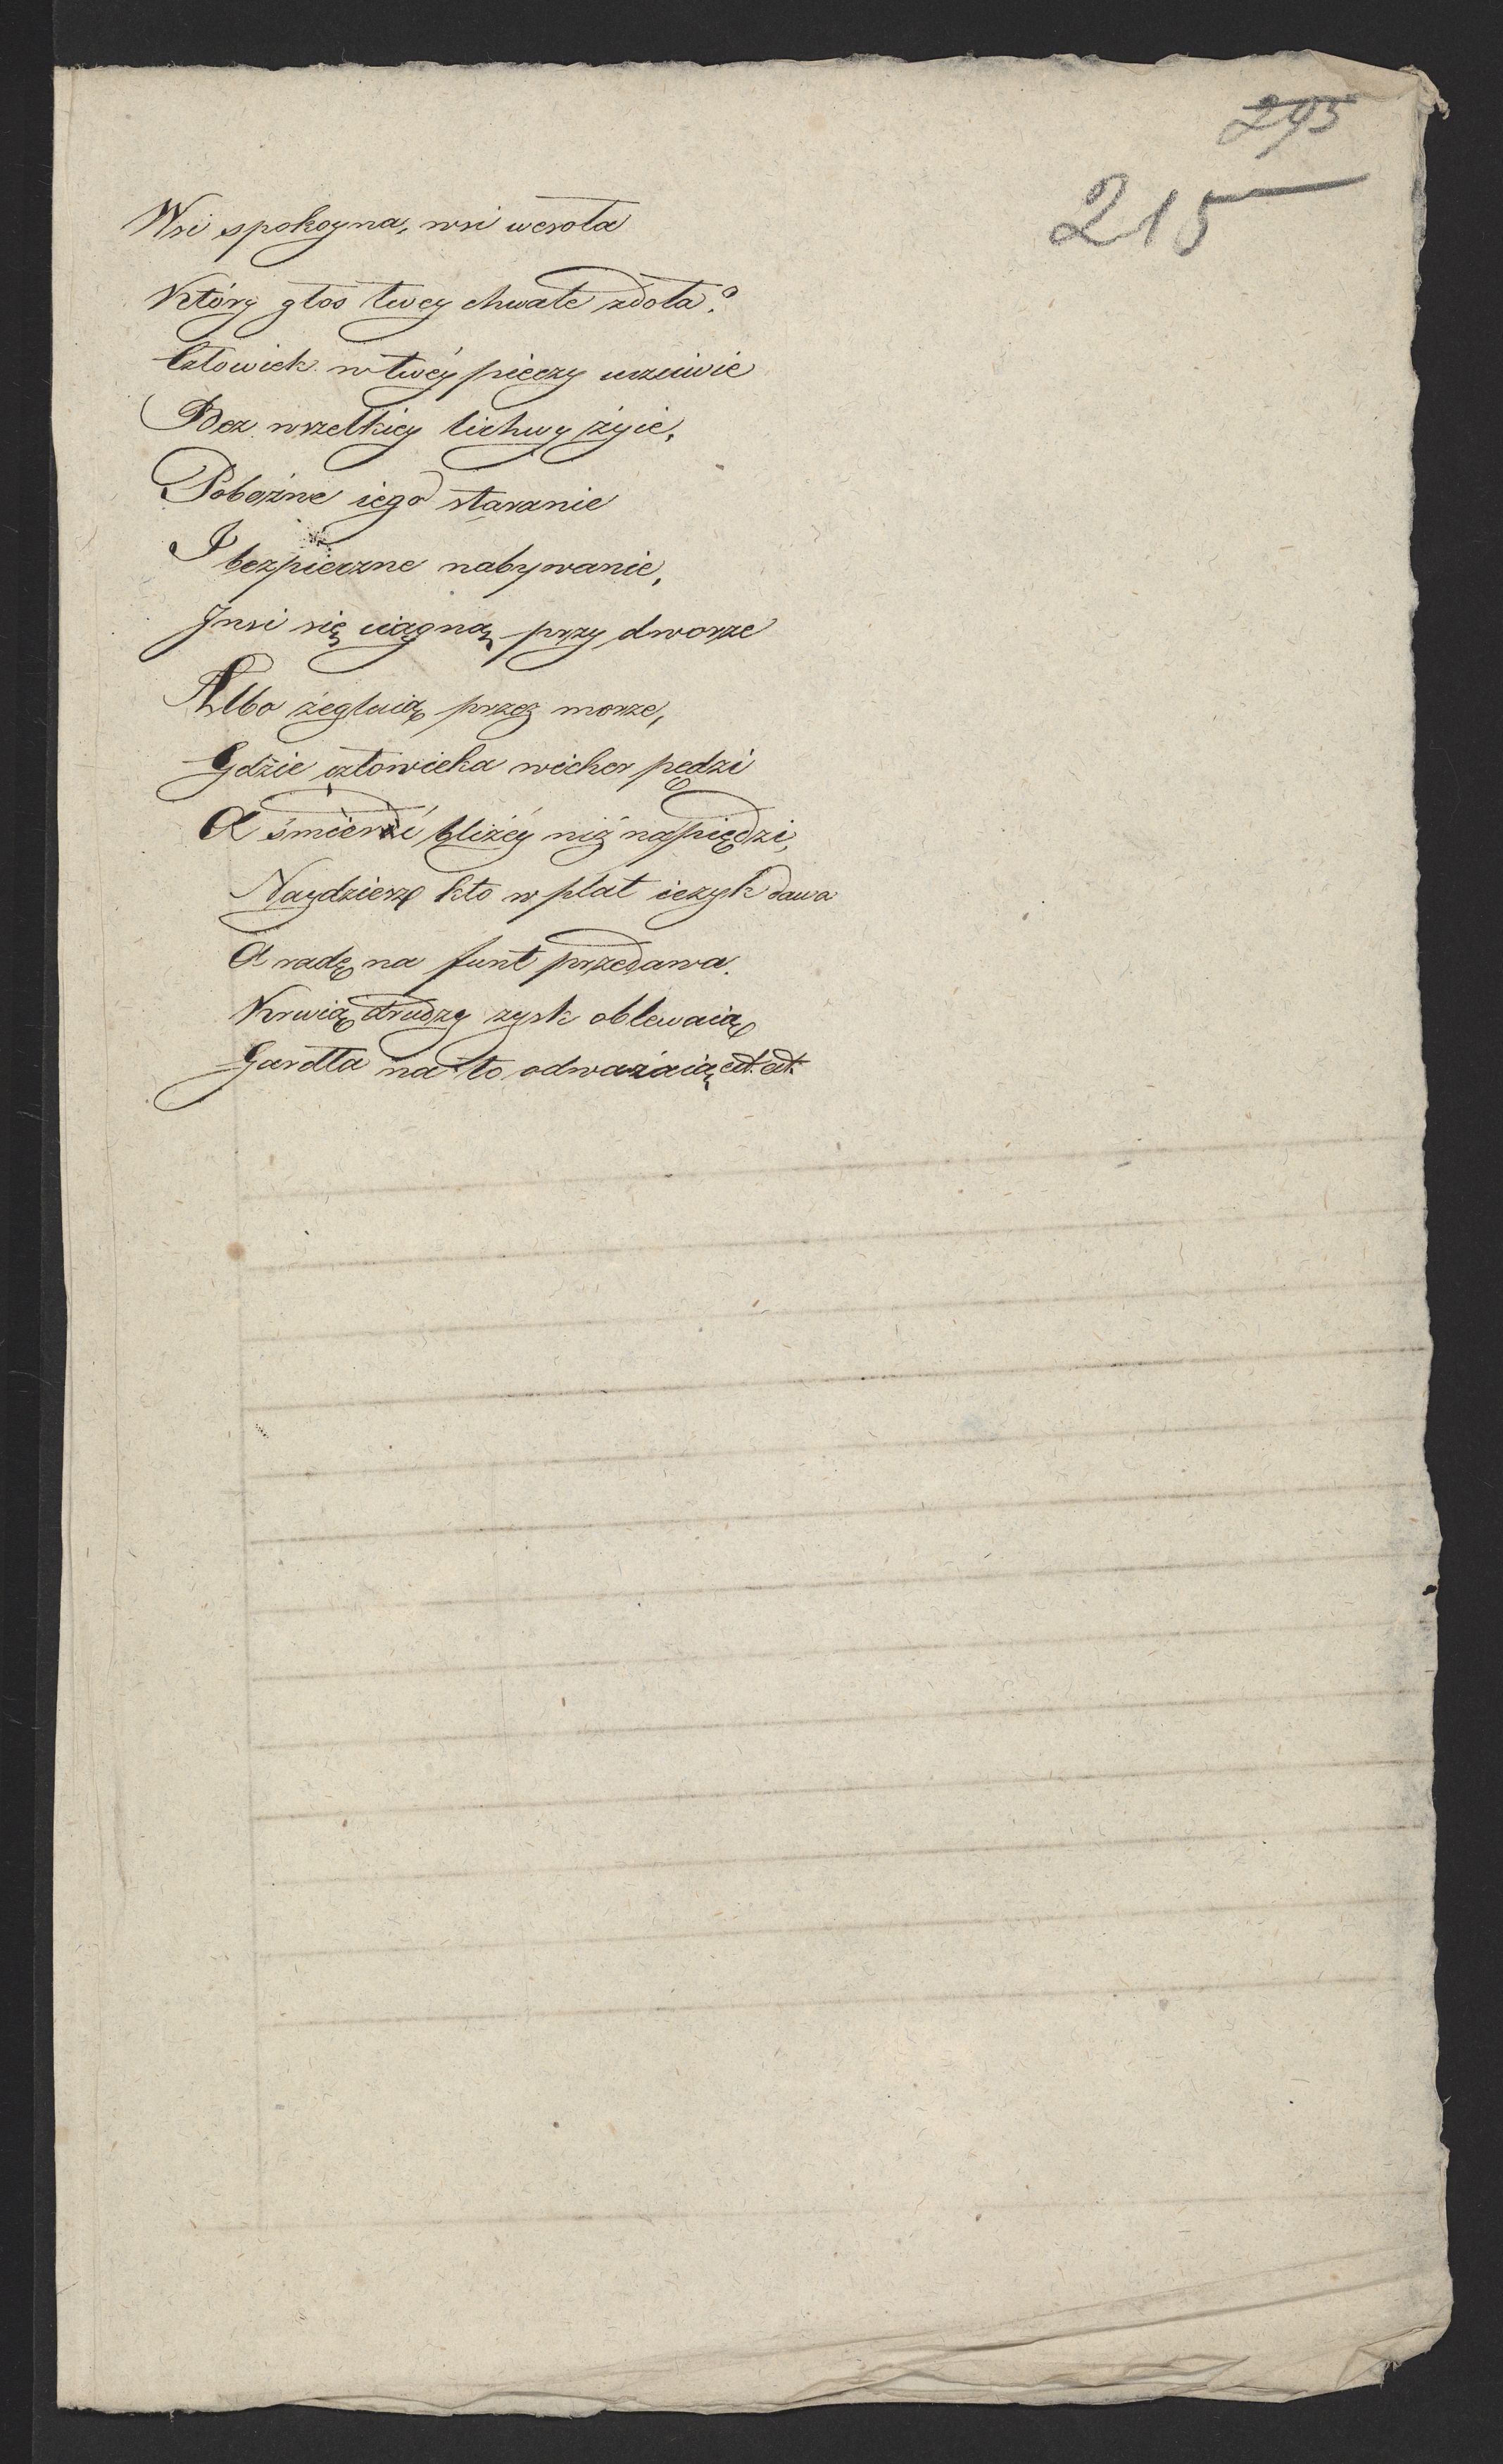 295
215
Wsi spokoyna, wsi wesoła
Który głos twey chwale zdoła?
Człowiek w twéy pieczy uczciwie
Bez wszelkiey lichwy żyie,
Pobożne iego staranie
I bezpieczne nabywanie,
Jnsi się ciągną przy dworze
Albo żegluią przez morze,
Gdzie człowieka wicher pędzi
A śmierć bliżéy niż na piędzi,
Naydziesz kto w płat ięzyk dawa
A radę na funt przedawa.
Krwią drudzy zysk oblewaią
Gardła na to odważaią etc. etc.